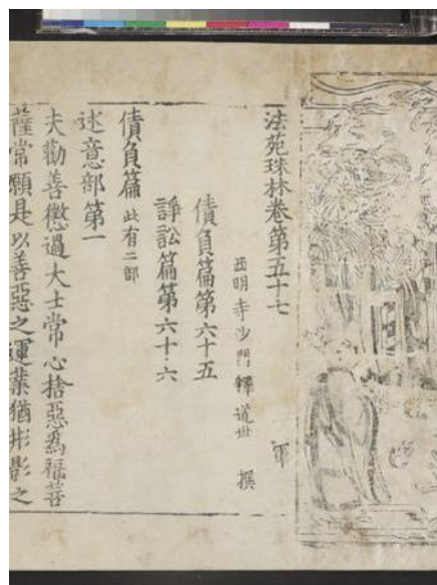 法苑珠林卷第五十七
西明寺沙門釋道世 撰
債負篇第六十五
諍訟篇第六十六
債負篇 此有二部
述意部第一
夫勸善懲過大士常心捨惡為福菩
薩常願是以善惡之運業猶形影之